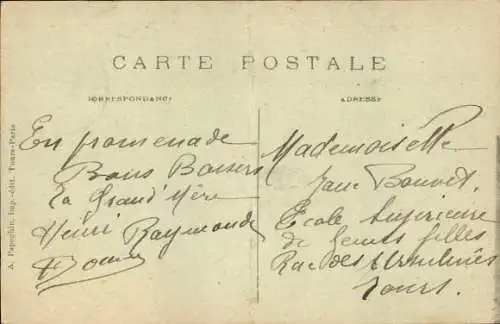 CARTE POSTALE
CORRESPONDANCE
ADRESSE
A. Papeghin, Imp.-édit. Tours-Paris
En promenade
Bons Baisers
La Grand'Mère
Henri Raymonde
Mademoiselle
Jane Bouvet.
École Supérieure
de jeunes filles
Rue des Ursulines
Tours.